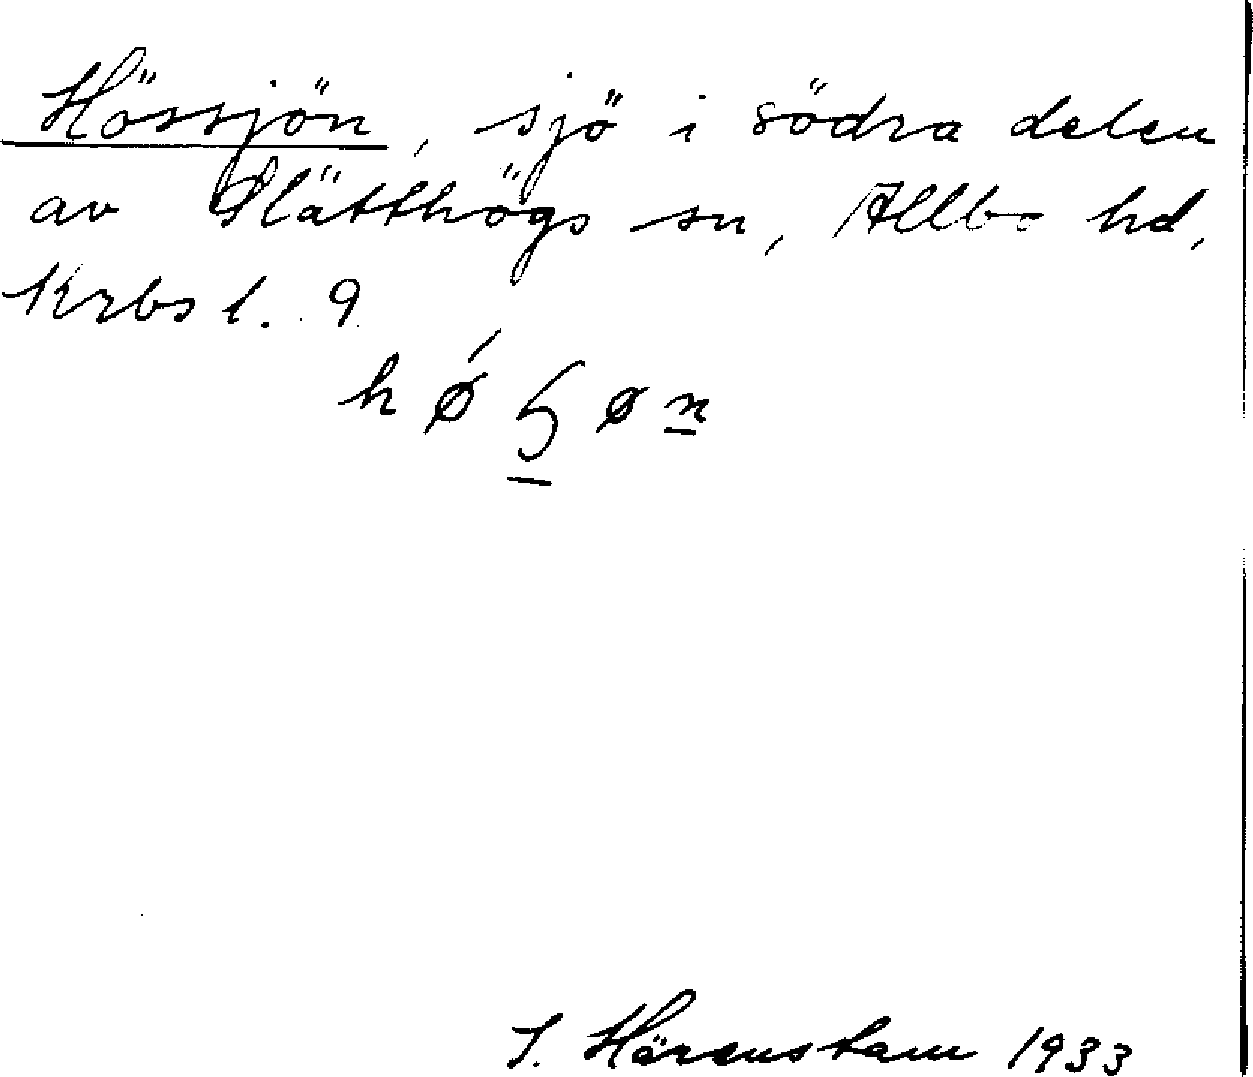 Hössjön, sjö i södra delen
av Slätthögs sn, Allbo hd,
Krbs l. 9
hǿ ꞩøn
I. Härenstam 1933